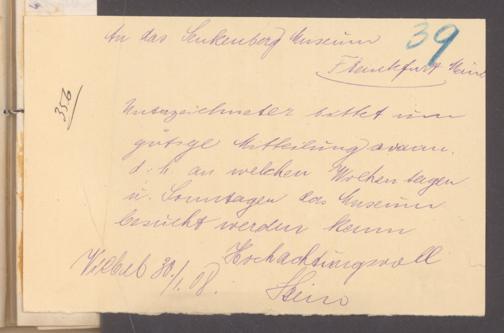 An das Senkenberg Museum
39
Frankfurt Main
356
Unterzeichneter bittet um
gütige Mitteilung wann
d. h. an welchen Wochentagen
u. Sonntagen das Museum
besucht werden kann
Hochachtungsvoll
Vilbel 30./1. 08.